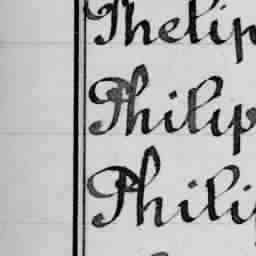 Phelip
Philip
Phili